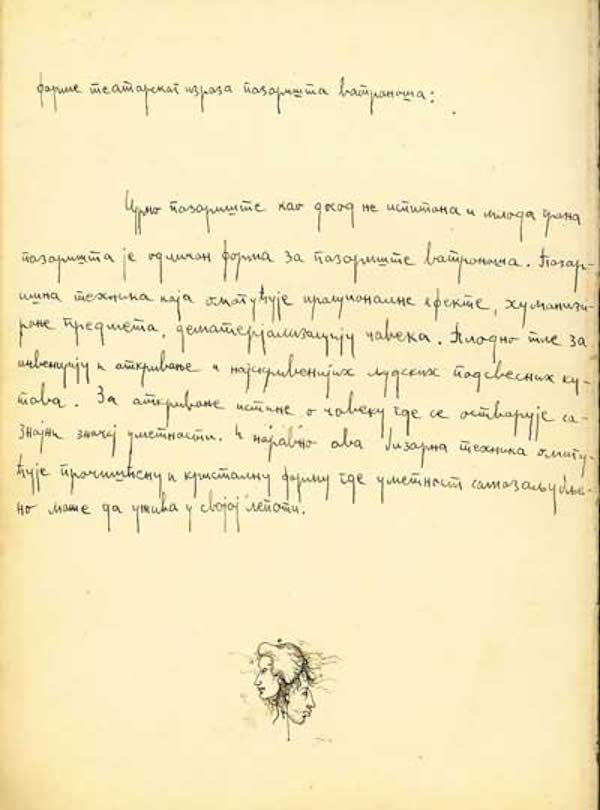 форме театарског израза позоришта ватроноша:
Црно позориште као досад не испитана и млода грана
позоришта је одличан форма за позориште ватроноша. Позор-
ишна техника која омогућује ирационалне ефекте, хуманизи-
ране предмета, дематерјализацију човека. Плодно тле за
инвенцију и откривање и најскривенијих људских подсвесних ку-
това. За откриване истине о човеку где се остварује са-
знајни значај уметности. И наравно ова бизарна техника омогу-
ћује прочишћену и кристалну форму где уметност самозаљубље-
но може да ужива у својој лепоти.